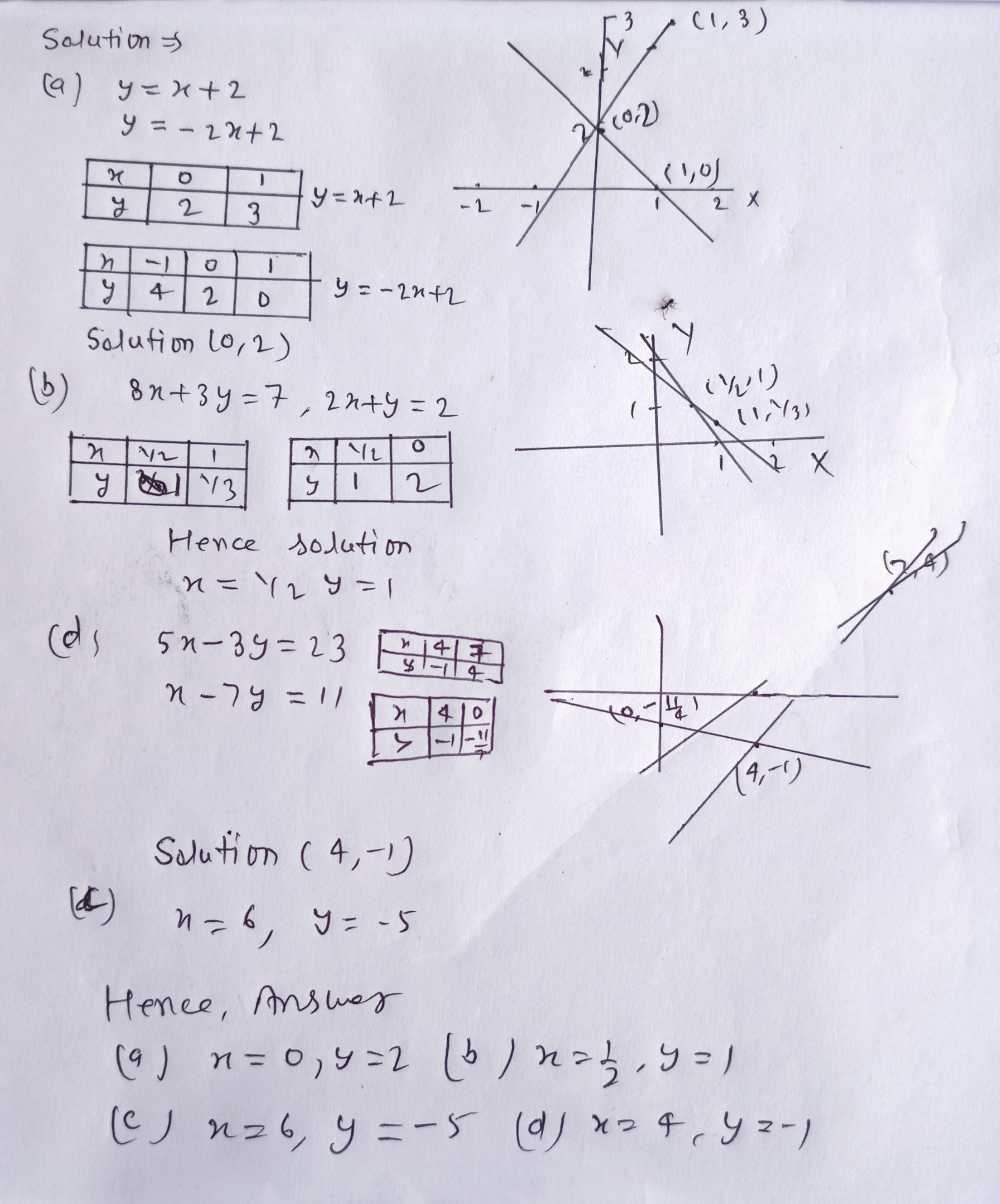 Solution ⇒
(a) y = x + 2
y = - 2x + 2
x | 0 | 1
y | 2 | 3
y = x + 2
x | -1 | 0 | 1
y | 4 | 2 | 0
y = - 2x + 2
Solution (0, 2)
3 (1, 3)
Y
2 (0,2)
(1,0)
-2 -1 1 2 X
(b) 8x + 3y = 7 , 2x + y = 2
x | 1/2 | 1
y | 1 | 1/3
x | 1/2 | 0
y | 1 | 2
Y
2
(1/2, 1)
1 (1, 1/3)
1 2 X
Hence solution
x = 1/2 y = 1
(d) 5x - 3y = 23
x | 4 | 7
y | -1 | 4
x - 7y = 11
x | 4 | 0
y | -1 | -11/7
(7, 4)
(4, -1)
Solution ( 4, -1)
(c) x = 6, y = - 5
Hence, Answer
(a) x = 0, y = 2 (b) x = 1/2, y = 1
(c) x = 6, y = - 5 (d) x = 4, y = -1